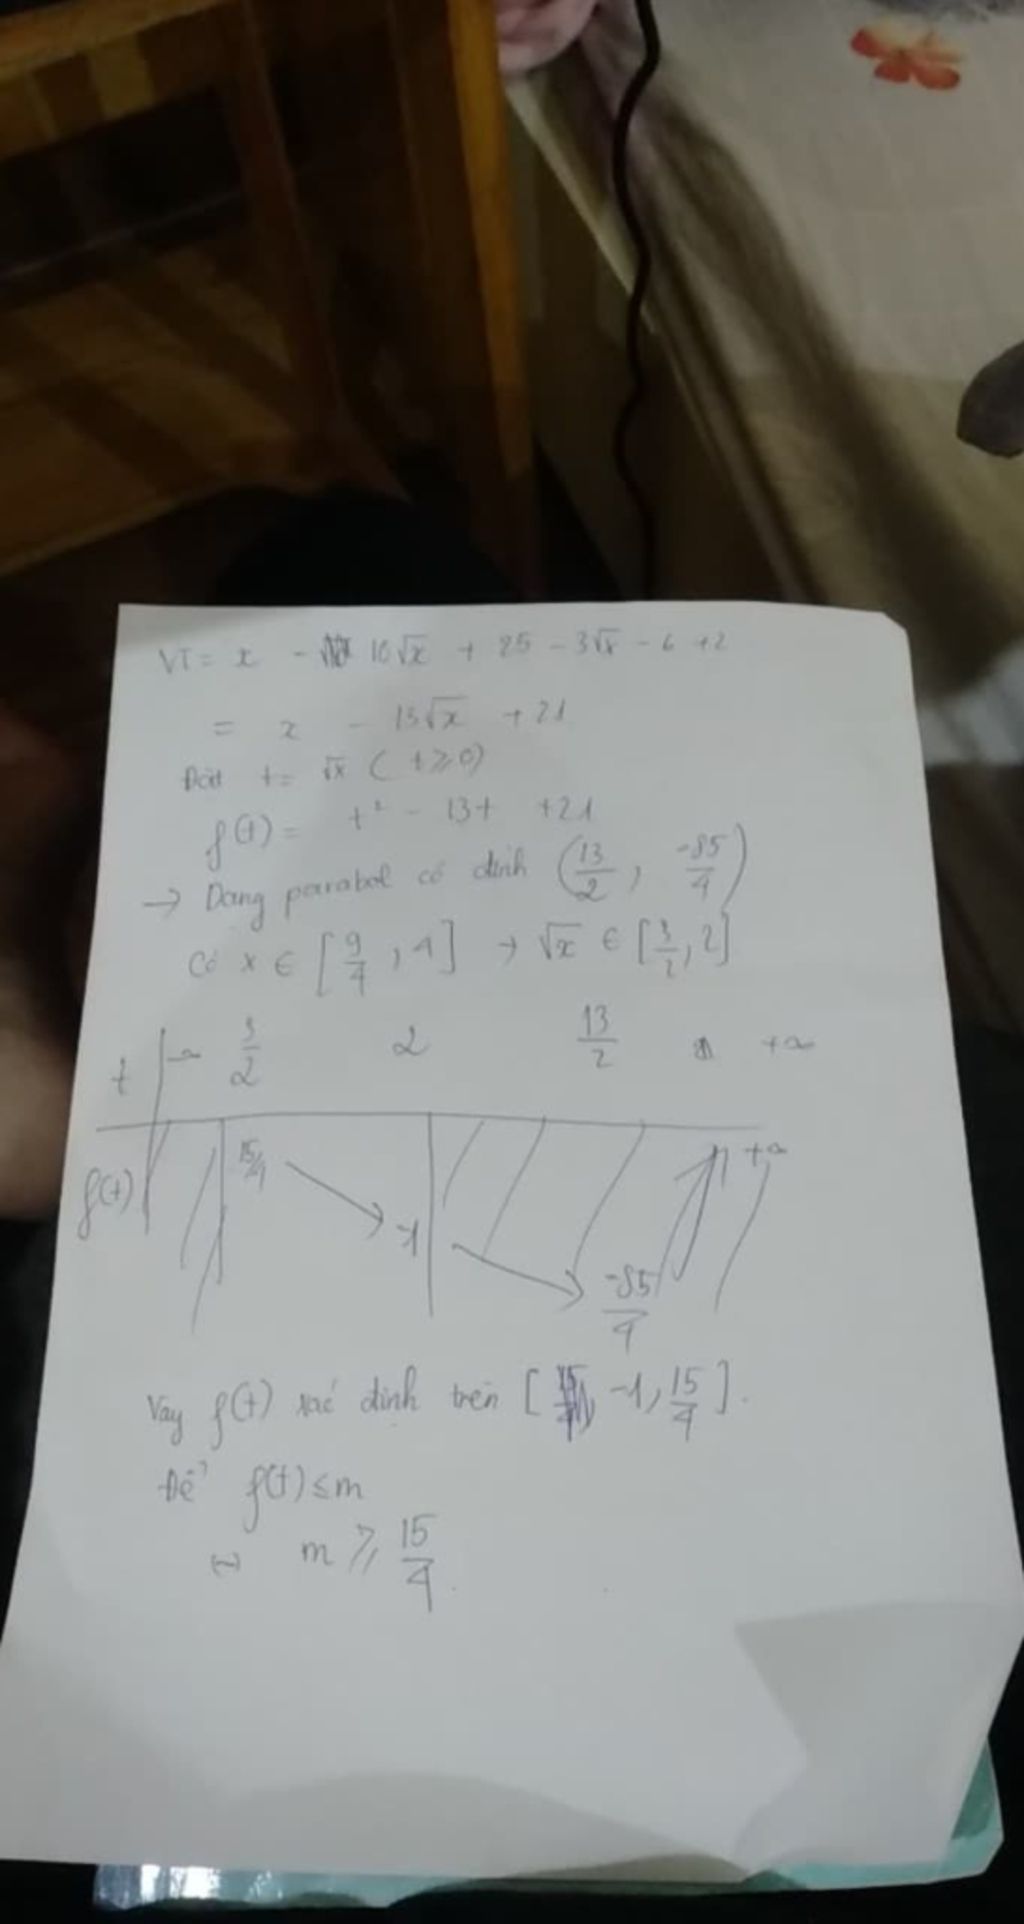 VT = x - 10√x + 25 - 3√x - 6 + 2
= x - 13√x + 21
Đặt t = √x ( t ≥ 0)
f(t) = t² - 13t + 21
→ Dạng parabol có đỉnh (13/2, -85/4)
Có x ∈ [9/4, 4] → √x ∈ [3/2, 2]
t -∞ 3/2 2 13/2 +∞
f(t) 15/4 -1 -85/4 +∞
Vậy f(t) xác định trên [-1, 15/4].
Để f(t) ≤ m
⇔ m ≥ 15/4.